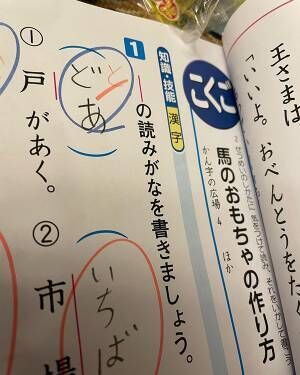 王さまは
「いいよ。おべんとうをた
こくご
馬のおもちゃの作り方
かん字の広場 4
ほか
知識・技能 漢字
1 の読みがなを書きましょう。
① 戸があく。
どあ
と
② 市場
いちば